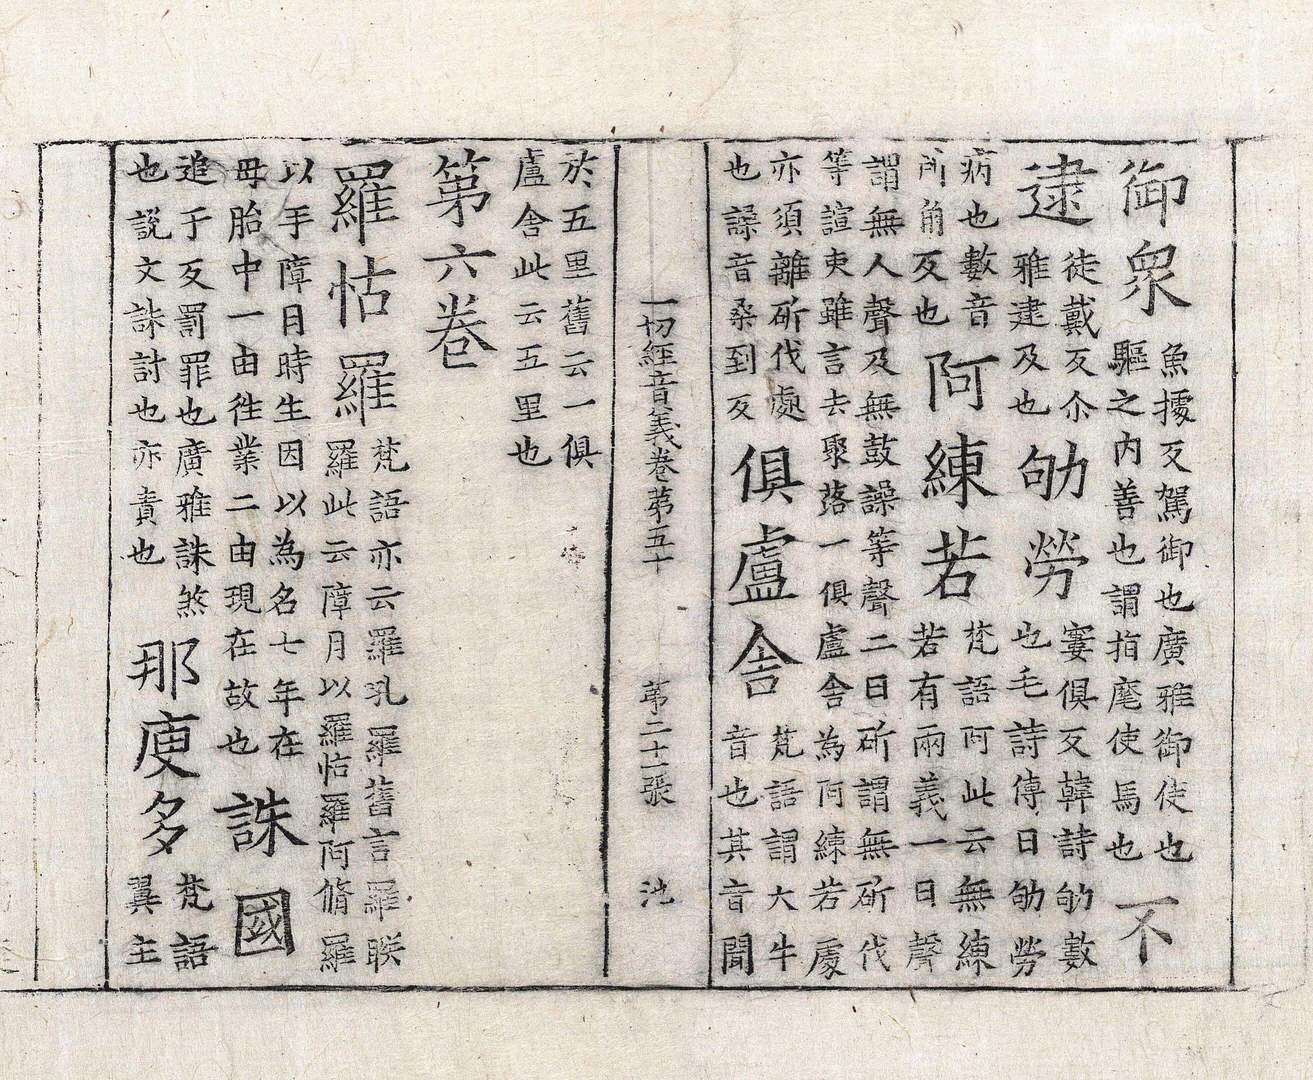 御眾魚據反駕御也廣雅御使也驅之內善也謂指麾使馬也不
逮徒戴反尒雅逮及也劬勞寠俱反韓詩劬數也毛詩傳曰劬勞
病也數音所角反也阿練若梵語阿此云無練若有兩義一曰聲
謂無人聲及無鼓譟等聲二曰斫謂無斫伐等諠吏雖言去聚落一俱盧舍為阿練若處
亦須離斫伐處也譟音桑到反俱盧舍梵語謂大牛音也其音聞
一切經音義卷第五十 第二十一張 池
於五里舊云一俱盧舍此云五里也
第六卷
羅怙羅梵語亦云羅吼羅舊言羅睺羅此云障月以羅怙羅阿脩羅
以手障日時生因以為名七年在母胎中一由往業二由現在故也誅國
追于反罰罪也廣雅誅煞也說文誅討也亦責也那庾多梵語翼主